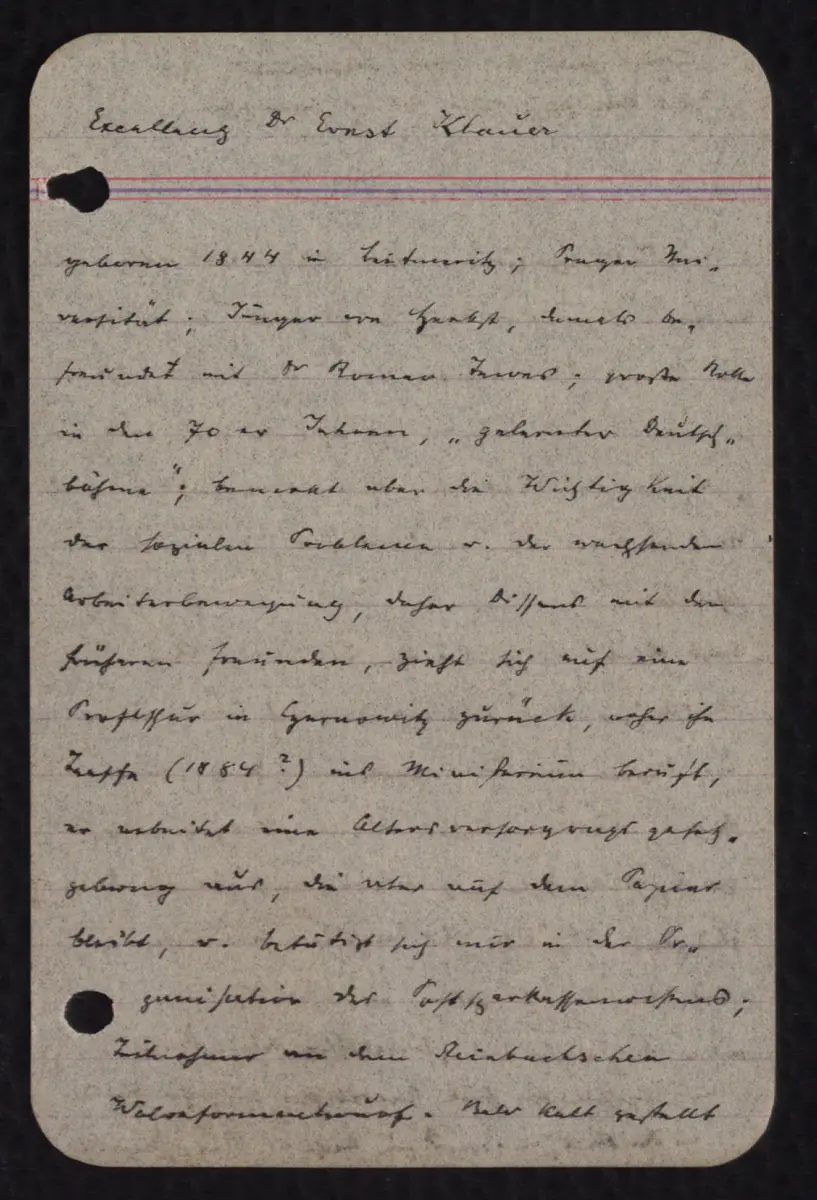 Excellenz Dr Ernst Klauer
geboren 1844 in Leitmeritz; Prager Uni-
versität; Jünger von Herbst, damals be-
freundet mit Dr Roman ; große Rolle
in den 70 er Jahren, „gelernter Deutsch-
böhme"; bemerkt aber die Wichtigkeit
der sozialen Probleme u. der wachsenden
Arbeiterbewegung, daher Dissens mit den
früheren Freunden, zieht sich auf eine
Professur in Czernowitz zurück, woher ihn
Taaffe (1884?) ins Ministerium beruft,
er arbeitet eine Altersversorgungsgesetz-
gebung aus, die aber auf dem Papier
bleibt, u. betätigt sich nur in der Or-
ganisation des Postsparkassenwesens;
Teilnehmer an dem Steinbachschen
. Bald kalt gestellt